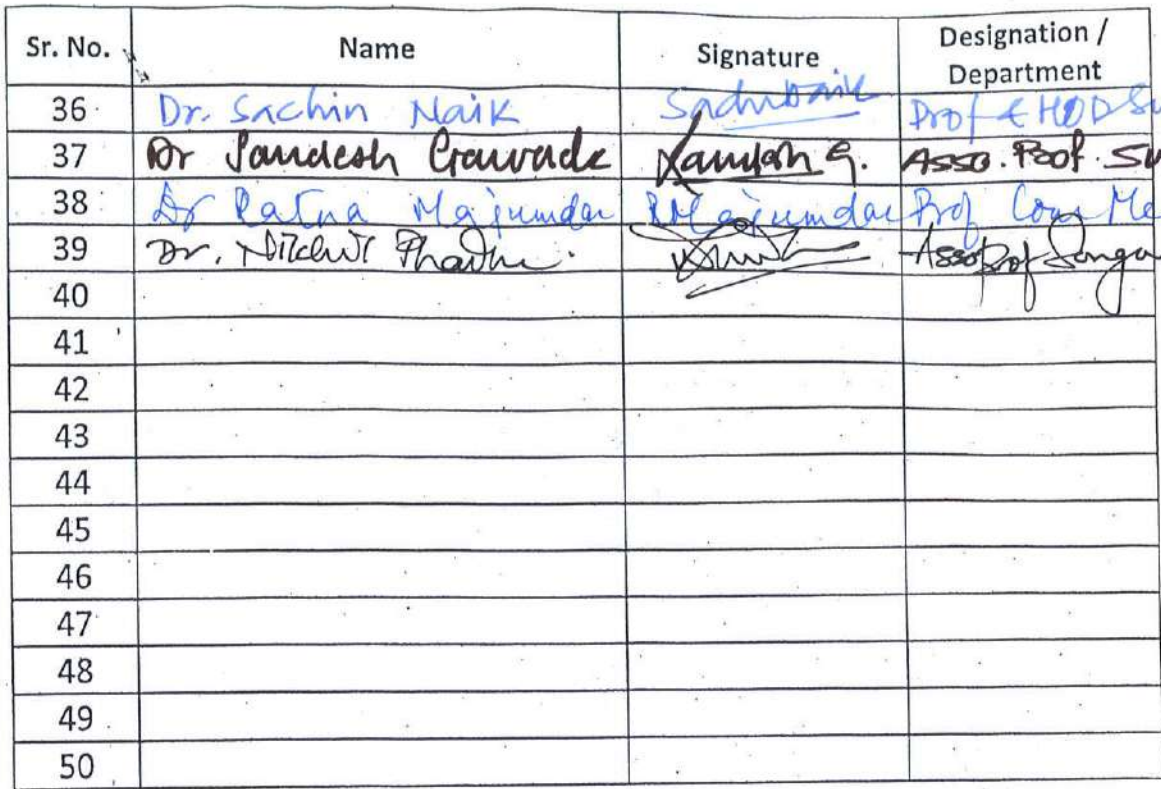 Sr. No. Name Signature Designation / Department
36 Dr. Sachin Naik Prof & HOD Su
37 Dr Sandesh Gawade Sandesh G. Asso. Prof. Su
38 Dr Ratna Majumdar RMajumdar Prof Com Me
39 Dr. Nikhil Asso Prof
40
41
42
43
44
45
46
47
48
49
50